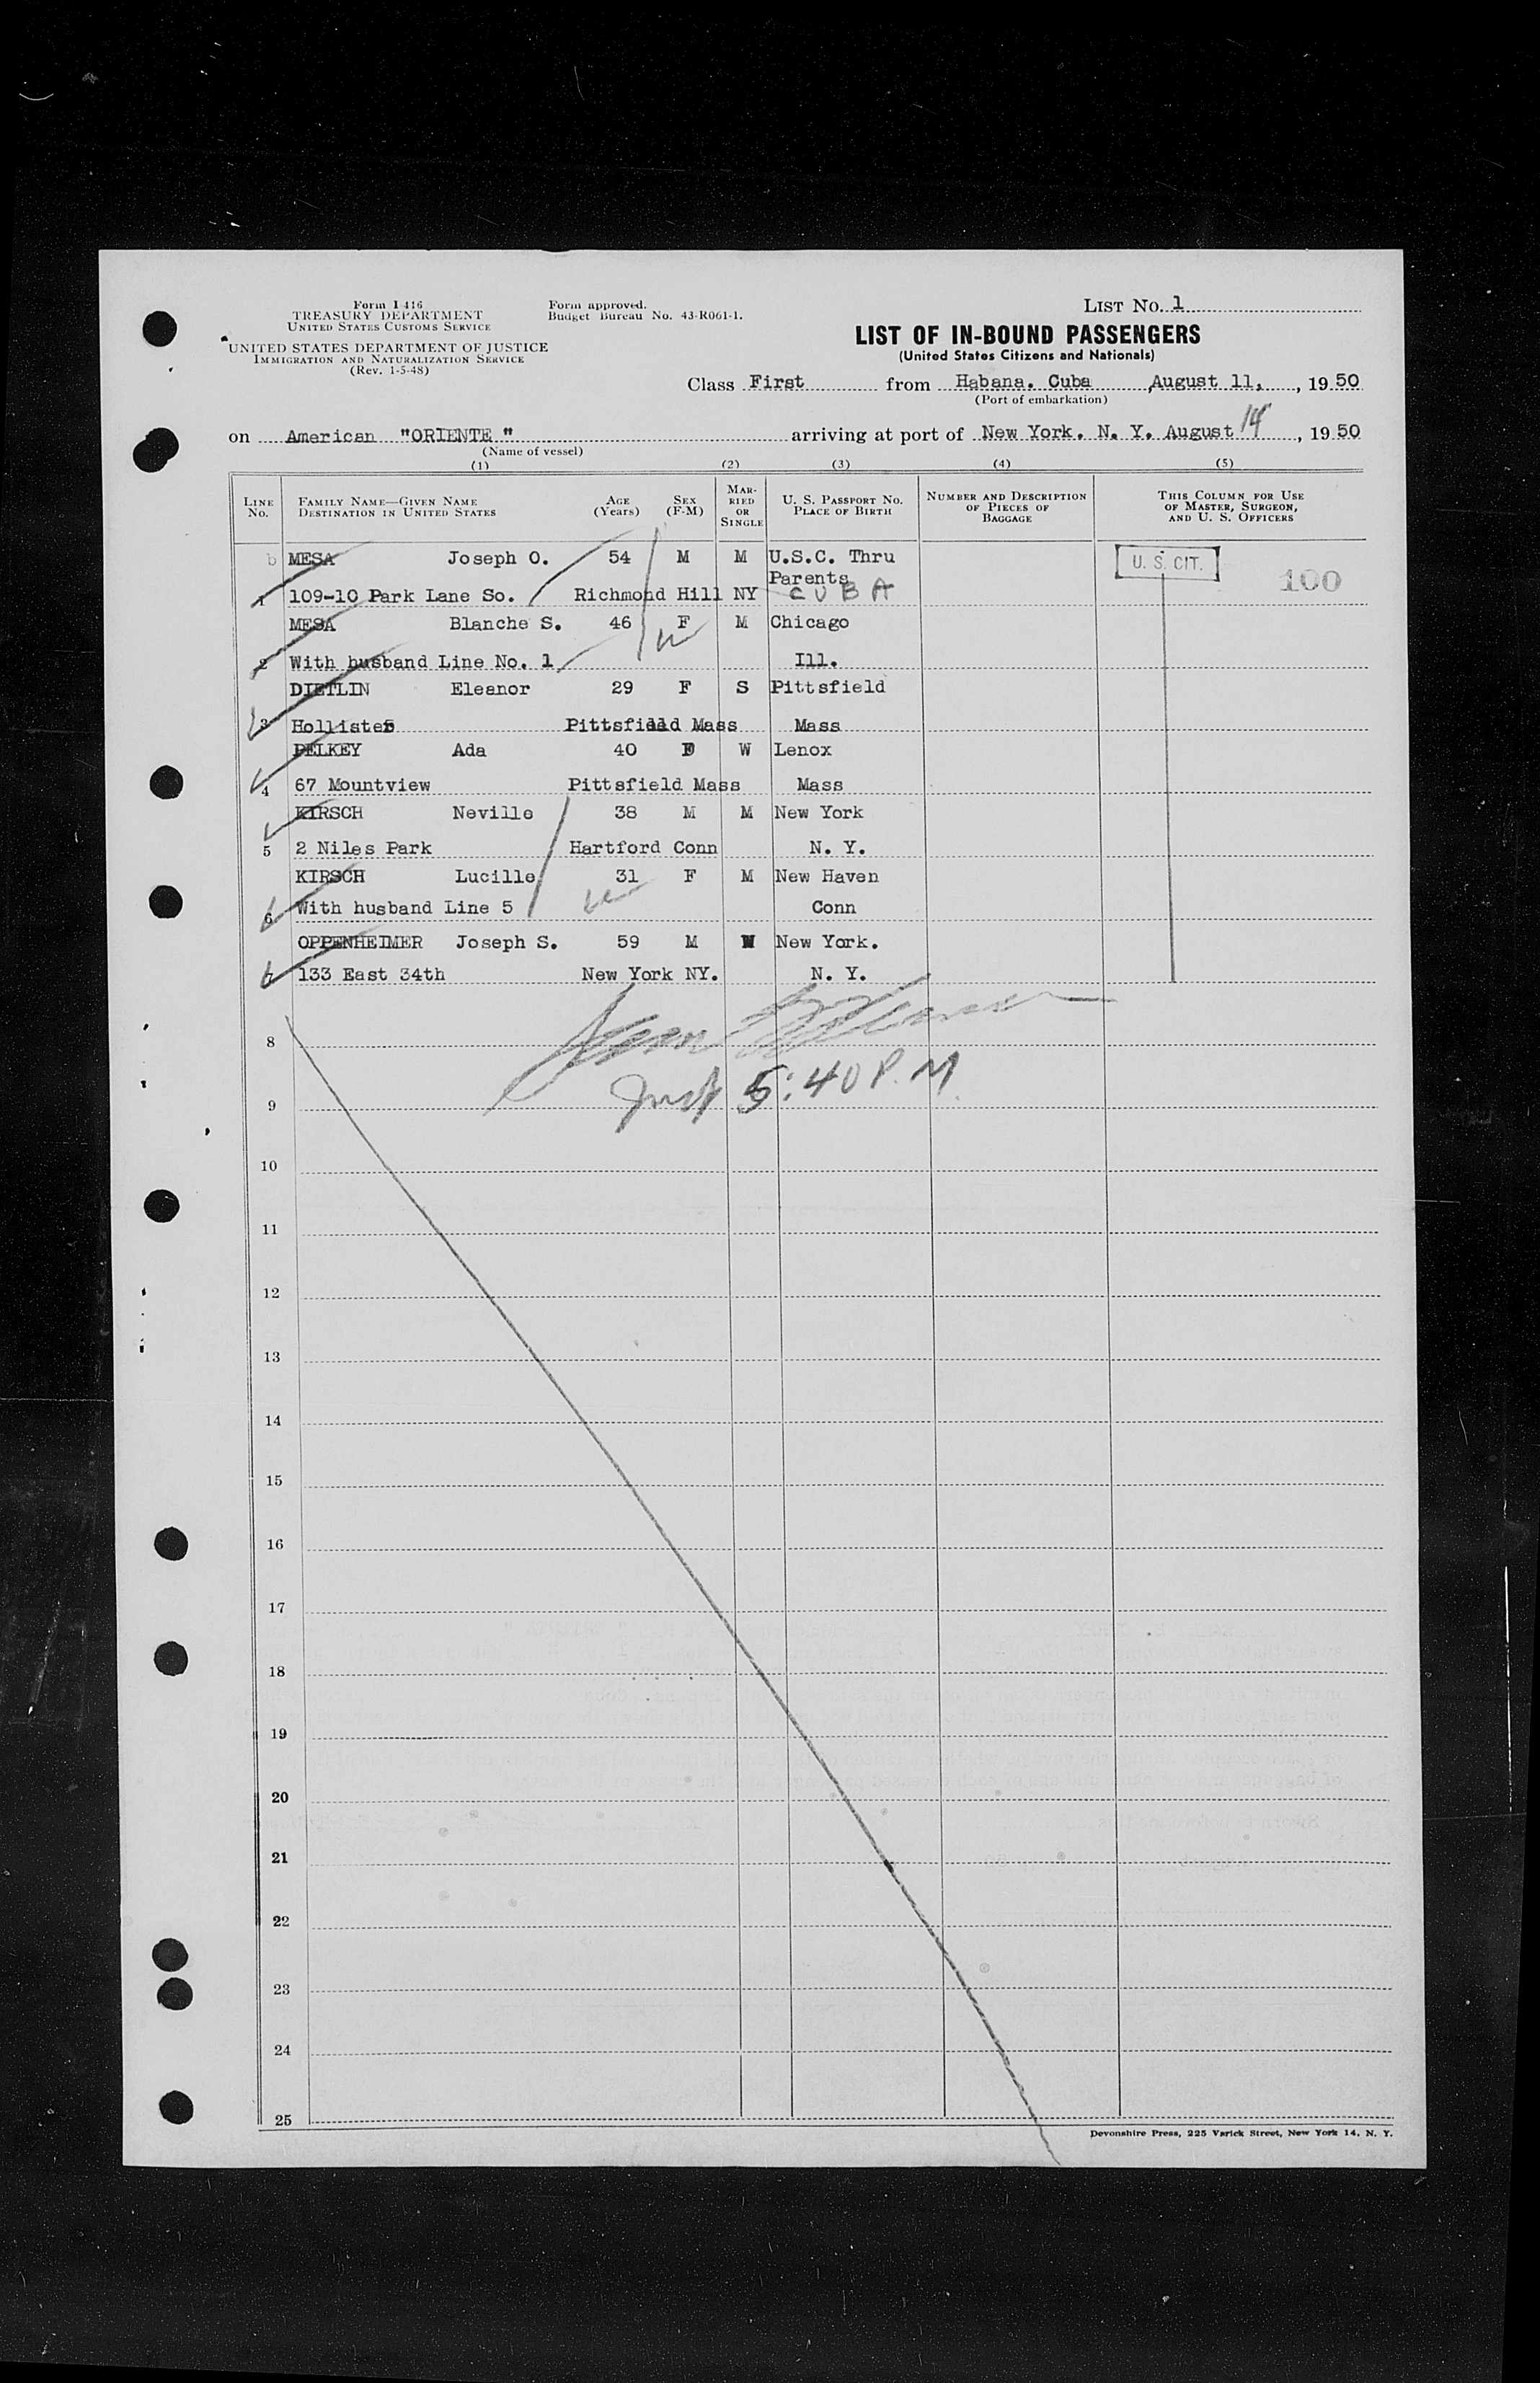 Form I 416
TREASURY DEPARTMENT
UNITED STATES CUSTOMS SERVICE
UNITED STATES DEPARTMENT OF JUSTICE
IMMIGRATION AND NATURALIZATION SERVICE
(Rev. 1-5-48)
Form approved.
Budget Bureau No. 43-R061-1.
LIST No. 1
LIST OF IN-BOUND PASSENGERS
(United States Citizens and Nationals)
Class First from Habana. Cuba, August 11, , 19 50
(Port of embarkation)
on American "ORIENTE " arriving at port of New York. N. Y. August 14 , 19 50
(Name of vessel)
(1) (2) (3) (4) (5)
LINE No. FAMILY NAME—GIVEN NAME DESTINATION IN UNITED STATES AGE (Years) SEX (F-M) MARRIED OR SINGLE U. S. PASSPORT NO. PLACE OF BIRTH NUMBER AND DESCRIPTION OF PIECES OF BAGGAGE THIS COLUMN FOR USE OF MASTER, SURGEON, AND U. S. OFFICERS
MESA Joseph O. 54 M M U.S.C. Thru U. S. CIT. 100
Parents
1 109-10 Park Lane So. Richmond Hill NY CUBA
MESA Blanche S. 46 F M Chicago
2 With husband Line No. 1 Ill.
DIETLIN Eleanor 29 F S Pittsfield
3 Pittsfield Mass Mass
PELKEY Ada 40 F W Lenox
4 67 Mountview Pittsfield Mass Mass
KIRSCH Neville 38 M M New York
5 2 Niles Park Hartford Conn N. Y.
KIRSCH Lucille 31 F M New Haven
6 With husband Line 5 Conn
OPPENHEIMER Joseph S. 59 M New York.
7 133 East 34th New York NY. N. Y.
8
5:40 P.M.
9
10
11
12
13
14
15
16
17
18
19
20
21
22
23
24
25
Devonshire Press, 225 Varick Street, New York 14, N. Y.